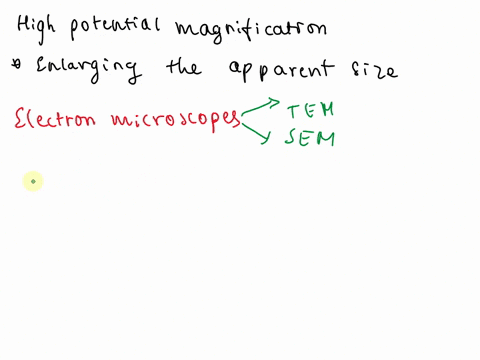 High potential magnification
* Enlarging the apparent size
Electron microscopes
TEM
SEM